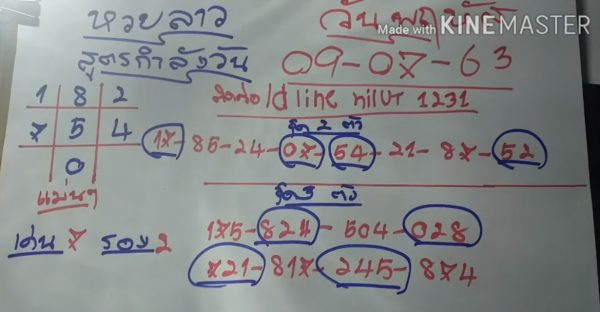 หวยลาว
วันพฤหัส
Made with KINEMASTER
สูตรกำลังวัน
09-07-63
1 8 2
7 5 4
0
แม่นๆ
เด่น 7 รอง 2
ติดต่อ Id line nilut 1231
ชุด 2 ตัว
17-85-24-07-54-21-87-52
ชุด 3 ตัว
175-824-504-028
721-817-245-874